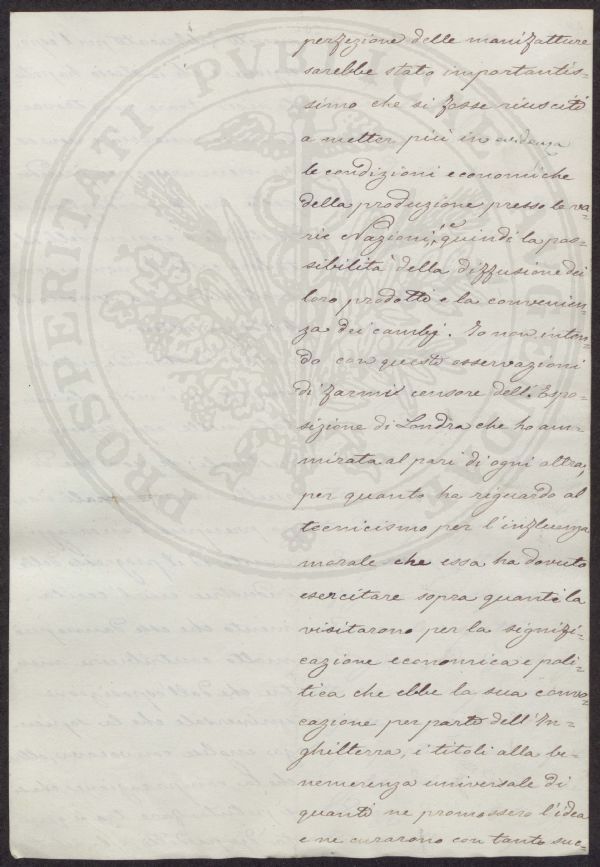 perfezione delle manifatture
sarebbe stato importantis=
simo che si fosse riusciti
a metter più in evidenza
le condizioni economiche
della produzione presso le va=
rie Nazioni, e quindi la pos=
sibilità della diffusione dei
loro prodotti e la convenien=
za dei cambj. Io non inten=
do con queste osservazioni
di farmi censore dell'Espo=
sizione di Londra che ho am=
mirata al pari di ogni altra,
per quanto ha riguardo al
tecnicismo per l'influenza
morale che essa ha dovuto
esercitare sopra quanti la
visitarono per la signifi=
cazione economica e poli=
tica che ebbe la sua convo=
cazione per parte dell'In=
ghilterra, i titoli alla be=
nemerenza universale di
quanti ne promossero l'idea
e ne curarono con tanto suc=
PROSPERITATI PVBLICAE